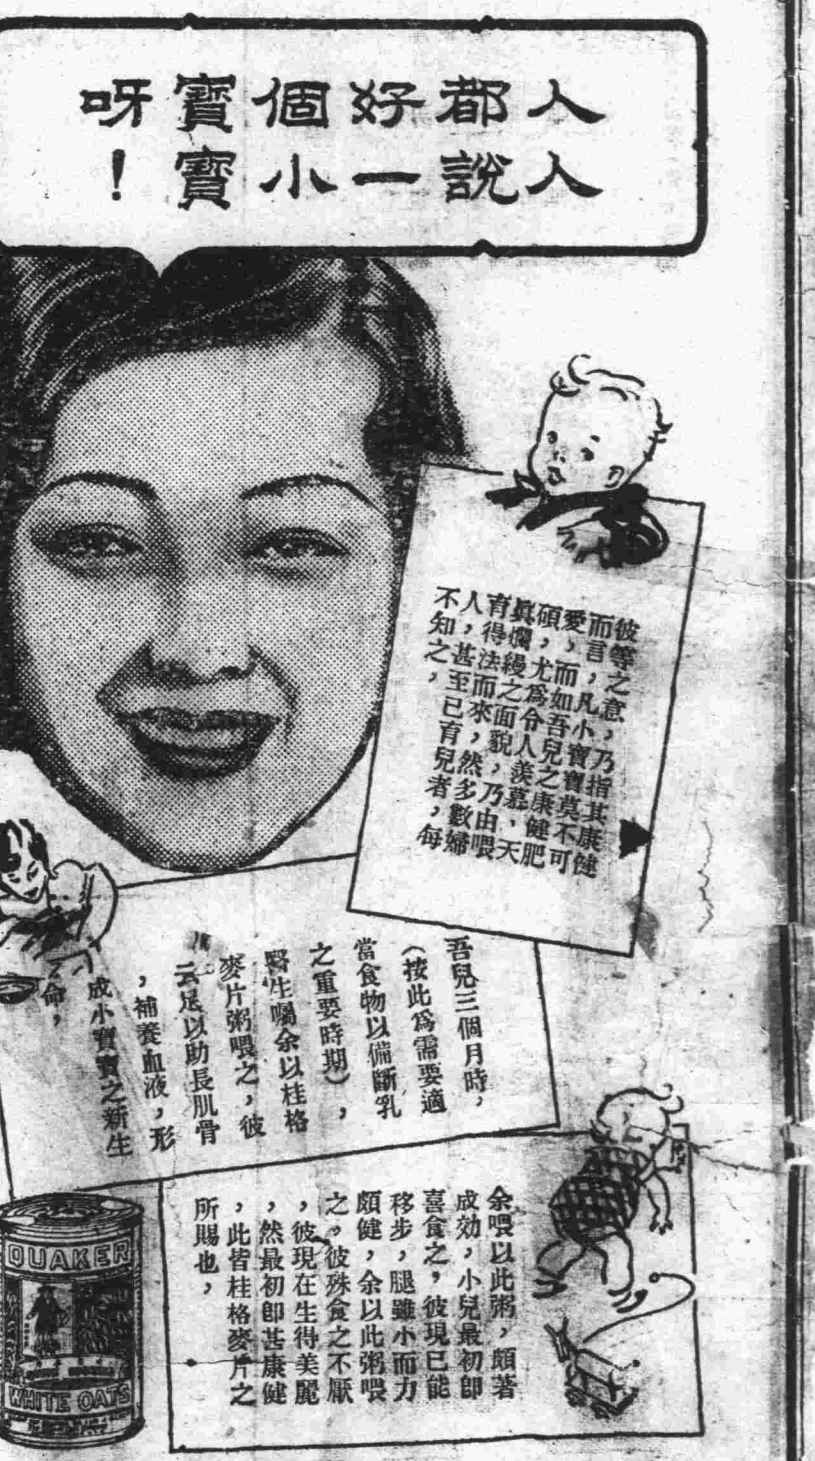 人人
都說
好一
個小
寶寶
呀！
彼等之意，乃指其康健
而言，凡小寶寶莫不可
愛，而如吾兒之康健肥
碩，尤爲令人羨慕，天
眞爛縵之面貌，乃由喂
育得法而來，然多數婦
人，甚至已有兒者，每
不知之，
吾兒三個月時，
（按此爲需要適
當食物以備斷乳
之重要時期），
醫生囑余以桂格
麥片粥喂之，彼
云足以助長肌骨
，補養血液，形
成小寶寶之新生
命，
余喂以此粥，頗著
成効，小兒最初卽
喜食之，彼現已能
移步，腿雖小而力
頗健，余以此粥喂
之，彼殊食之不厭
，彼現在生得美麗
，然最初卽甚康健
，此皆桂格麥片之
所賜也，
QUAKER
WHITE OATS